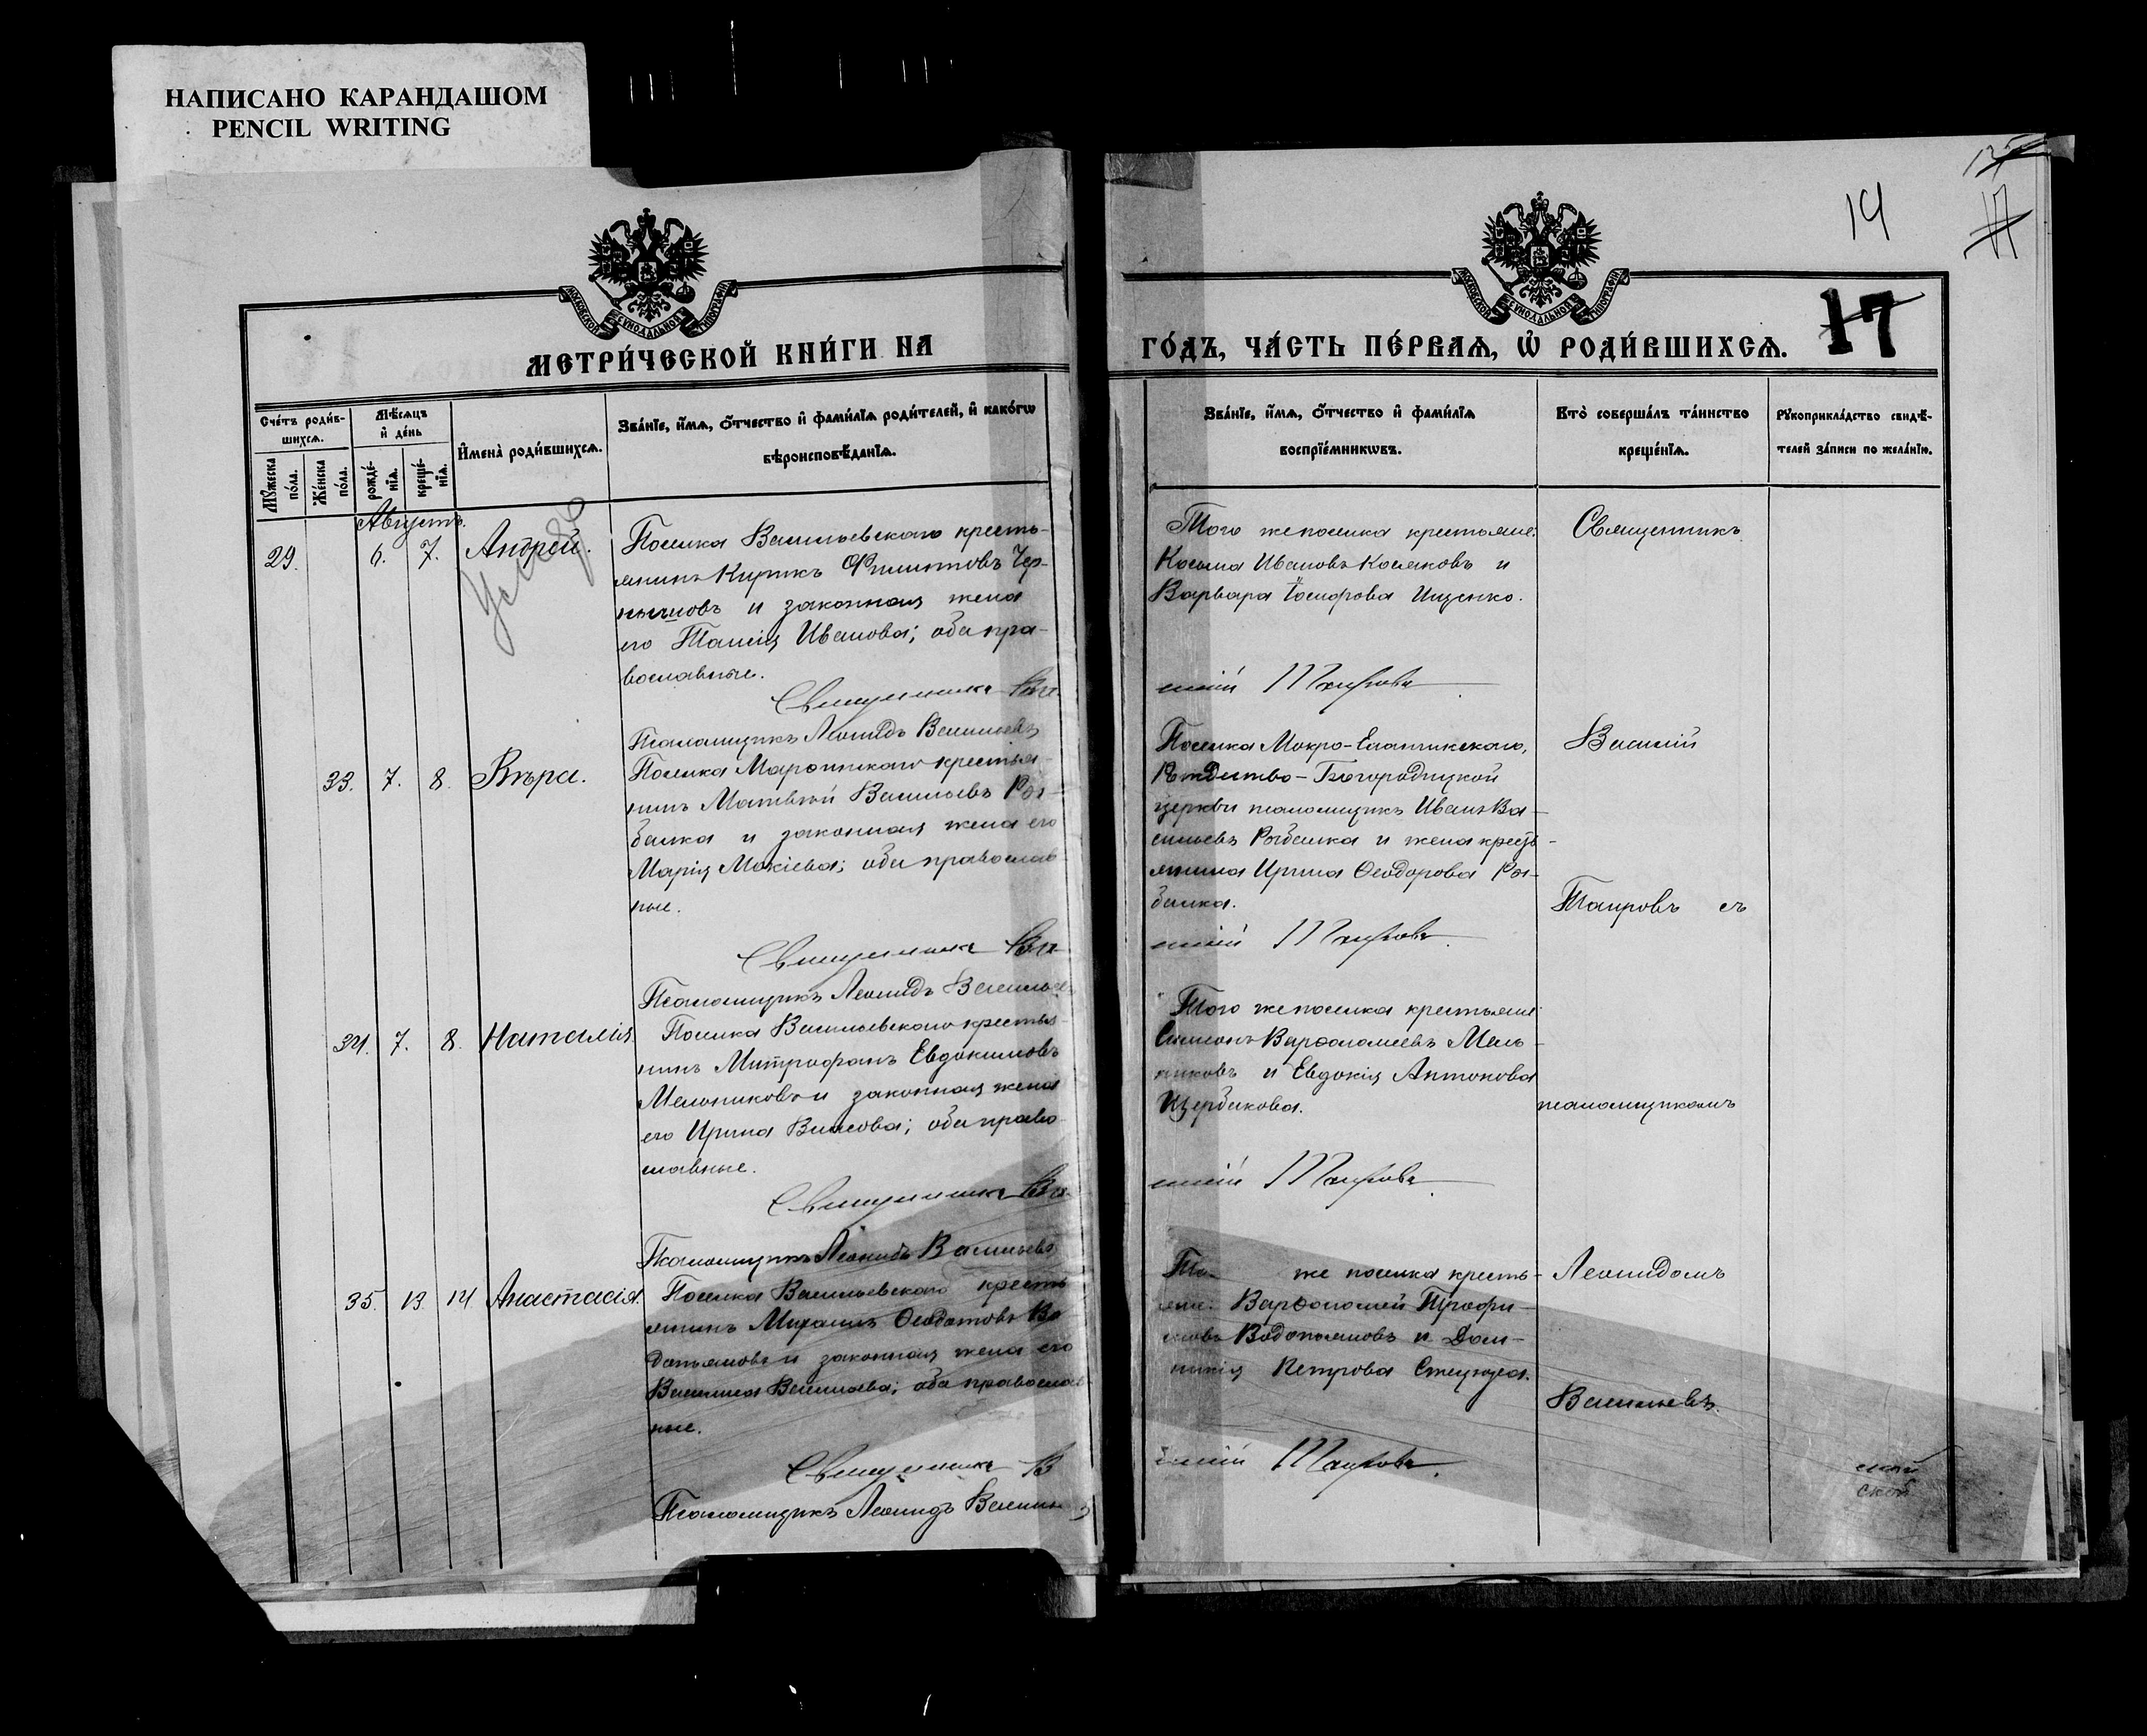 НАПИСАНО КАРАНДАШОМ
PENCIL WRITING
14
17
МОСКОВСКОЙ СѴНОДАЛЬНОЙ ТИПОГРАФІИ
МЕТРИ́ЧЕСКОЙ КНИ́ГИ НА
Сче́тъ роди́в-
шихсѧ.
Мѣ́сѧцъ
и҆ де́нь
Мꙋ́жеска
по́ла.
Же́нска
по́ла.
рожде́-
нїѧ.
креще́-
нїѧ.
И҆мена̀ роди́вшихсѧ.
Зва́нїе, и҆́мѧ, ѻ҆́тчество и҆ фами́лїѧ роди́телей, и҆ како́гѡ
вѣроисповѣ́данїѧ.
Августъ.
29.
6.
7.
Андрей.
умеръ
Поселка Васильевскаго кресть-
янинъ Кирикъ Филиповъ Чер-
нышовъ и законная жена
его Таисія Иванова; оба пра-
вославные.
Священникъ Ва-
Псаломщикъ Леонидъ Васильевъ
33.
7.
8.
Вѣра.
Поселка Марьинскаго крестья-
нинъ Матвѣй Васильевъ Ры-
балка и законная жена его
Марія Мокіева; оба православ-
ные.
Священникъ Ва-
Псаломщикъ Леонидъ Васильевъ
34.
7.
8.
Наталія.
Поселка Васильевскаго крестья-
нинъ Митрофанъ Евдокимовъ
Мельниковъ и законная жена
его Ирина Власова; оба право-
славные.
Священникъ Ва-
Псаломщикъ Леонидъ Васильевъ
35.
13.
14.
Анастасія.
Поселка Васильевскаго кресть-
янинъ Михаилъ Ѳеодотовъ Во-
допьяновъ и законная жена его
Василиса Васильева; оба православ-
ные.
Священникъ В
Псаломщикъ Леонидъ Васильевъ
МОСКОВСКОЙ СѴНОДАЛЬНОЙ ТИПОГРАФІИ
ГО́ДЪ, ЧА́СТЬ ПЕ́РВАѦ, Ѡ҆ РОДИ́ВШИХСѦ.
17
Зва́нїе, и҆́мѧ, ѻ҆́тчество и҆ фами́лїѧ
воспрїе́мникѡвъ.
Кто̀ соверша́лъ та́инство
креще́нїѧ.
Рꙋкоприкла́дство свидѣ́-
телей за́писи по жела́нїю.
Того же поселка крестьяне:
Косьма Ивановъ Косяковъ и
Варвара Ищенко.
силій Таировъ
Поселка Мокро-Еланчикскаго,
Рождество-Богородицкой
церкви псаломщикъ Иванъ Ва-
сильевъ Рыбалка и жена кресть-
янина Ирина Ѳеодорова Ры-
балка.
силій Таировъ
Того же поселка крестьяне:
Симеонъ Варѳоломеевъ Мель-
никовъ и Евдокія Антонова
Щербакова.
силій Таировъ
То же поселка кресть-
яне: Варѳоломей Трофи-
мовъ Водопьяновъ и Дом-
никія Петрова Стецура.
силій Таировъ
Священникъ
Василій
Таировъ съ
псаломщикомъ
Леонидомъ
Васильевъ.